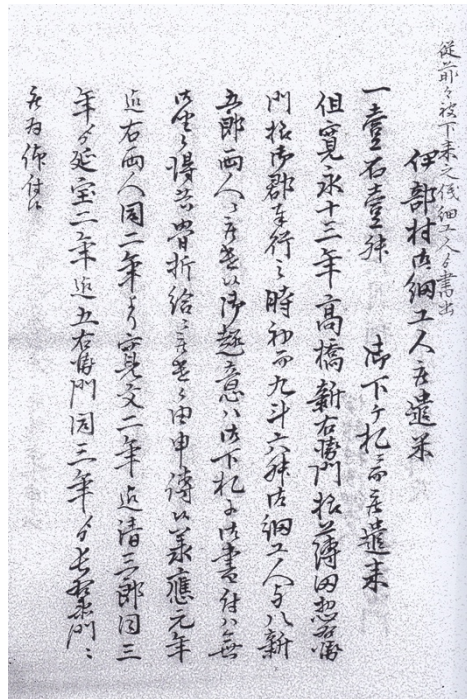 従前々被下来之儀細工人ゟ書出
伊部村御細工人被遣米
一壹石壹斗 御下ケ札ニ而被遣来
但寛永十三年高橋新右衛門様薄田惣右衛
門様御郡奉行之時初而九斗六舛御細工人与八新
五郎両人江被遣候御趣意ハ御下札ニ御書付ハ無
御座候得共骨折給ニ被遣候由申傳候承應元年
迄右両人同二年ゟ寛文二年迄清三郎同三
年ゟ延宝二年迄五右衛門同三年ゟ長右衛門ニ
被為仰付候